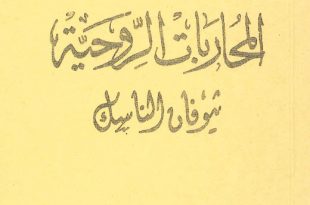 المحاربات الروحيّة
ثيوفان الناسك